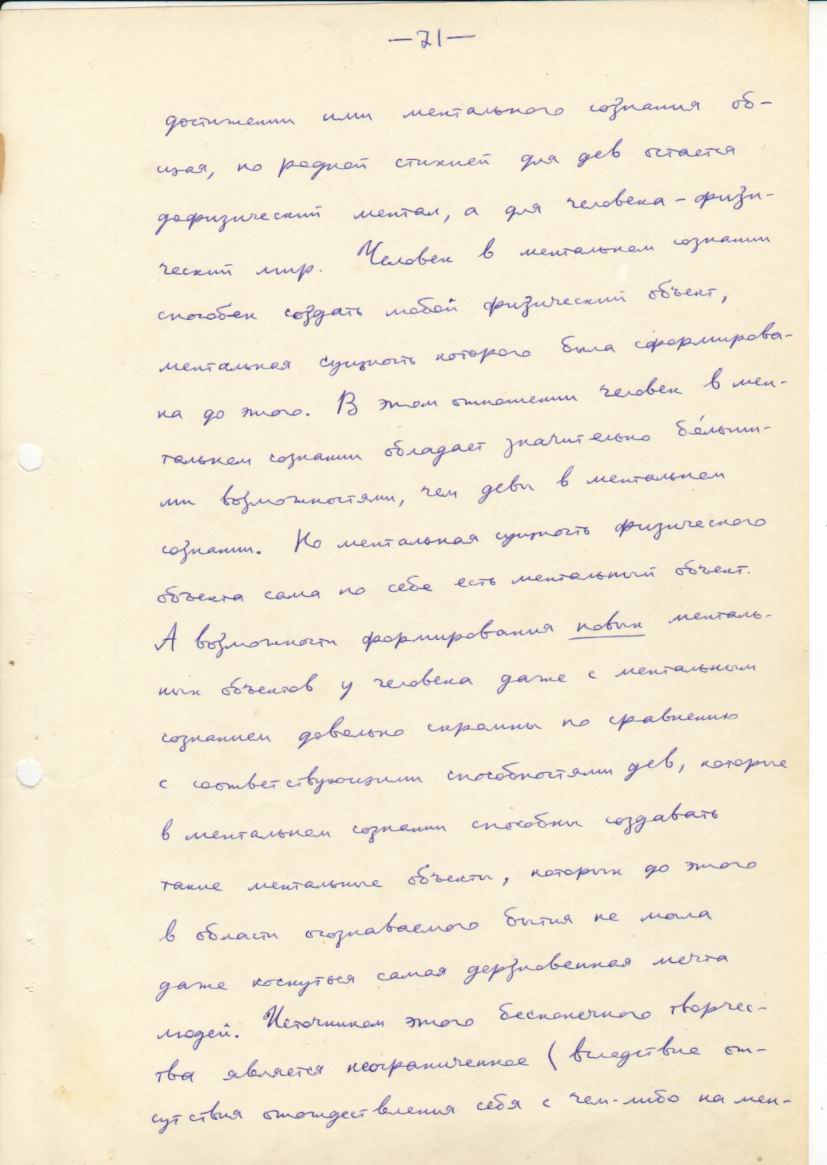 —71—
достижении ими ментального сознания об-
щая, но родной стихией для дев остается
дофизический ментал, а для человека – физи-
ческий мир. Человек в ментальном сознании
способен создать любой физический объект,
ментальная сущность которого была сформирова-
на до этого. В этом отношении человек в мен-
тальном сознании обладает значительно бо́льши-
ми возможностями, чем девы в ментальном
сознании. Но ментальная сущность физического
объекта сама по себе есть ментальный объект.
А возможности формирования новых менталь-
ных объектов у человека даже с ментальным
сознанием довольно скромны по сравнению
с соответствующими способностями дев, которые
в ментальном сознании способны создавать
такие ментальные объекты, которых до этого
в области осознаваемого бытия не могла
даже коснуться самая дерзновенная мечта
людей. Источником этого бесконечного творчес-
тва является неограниченное (вследствие от-
сутствия отождествления себя с чем-либо на мен-